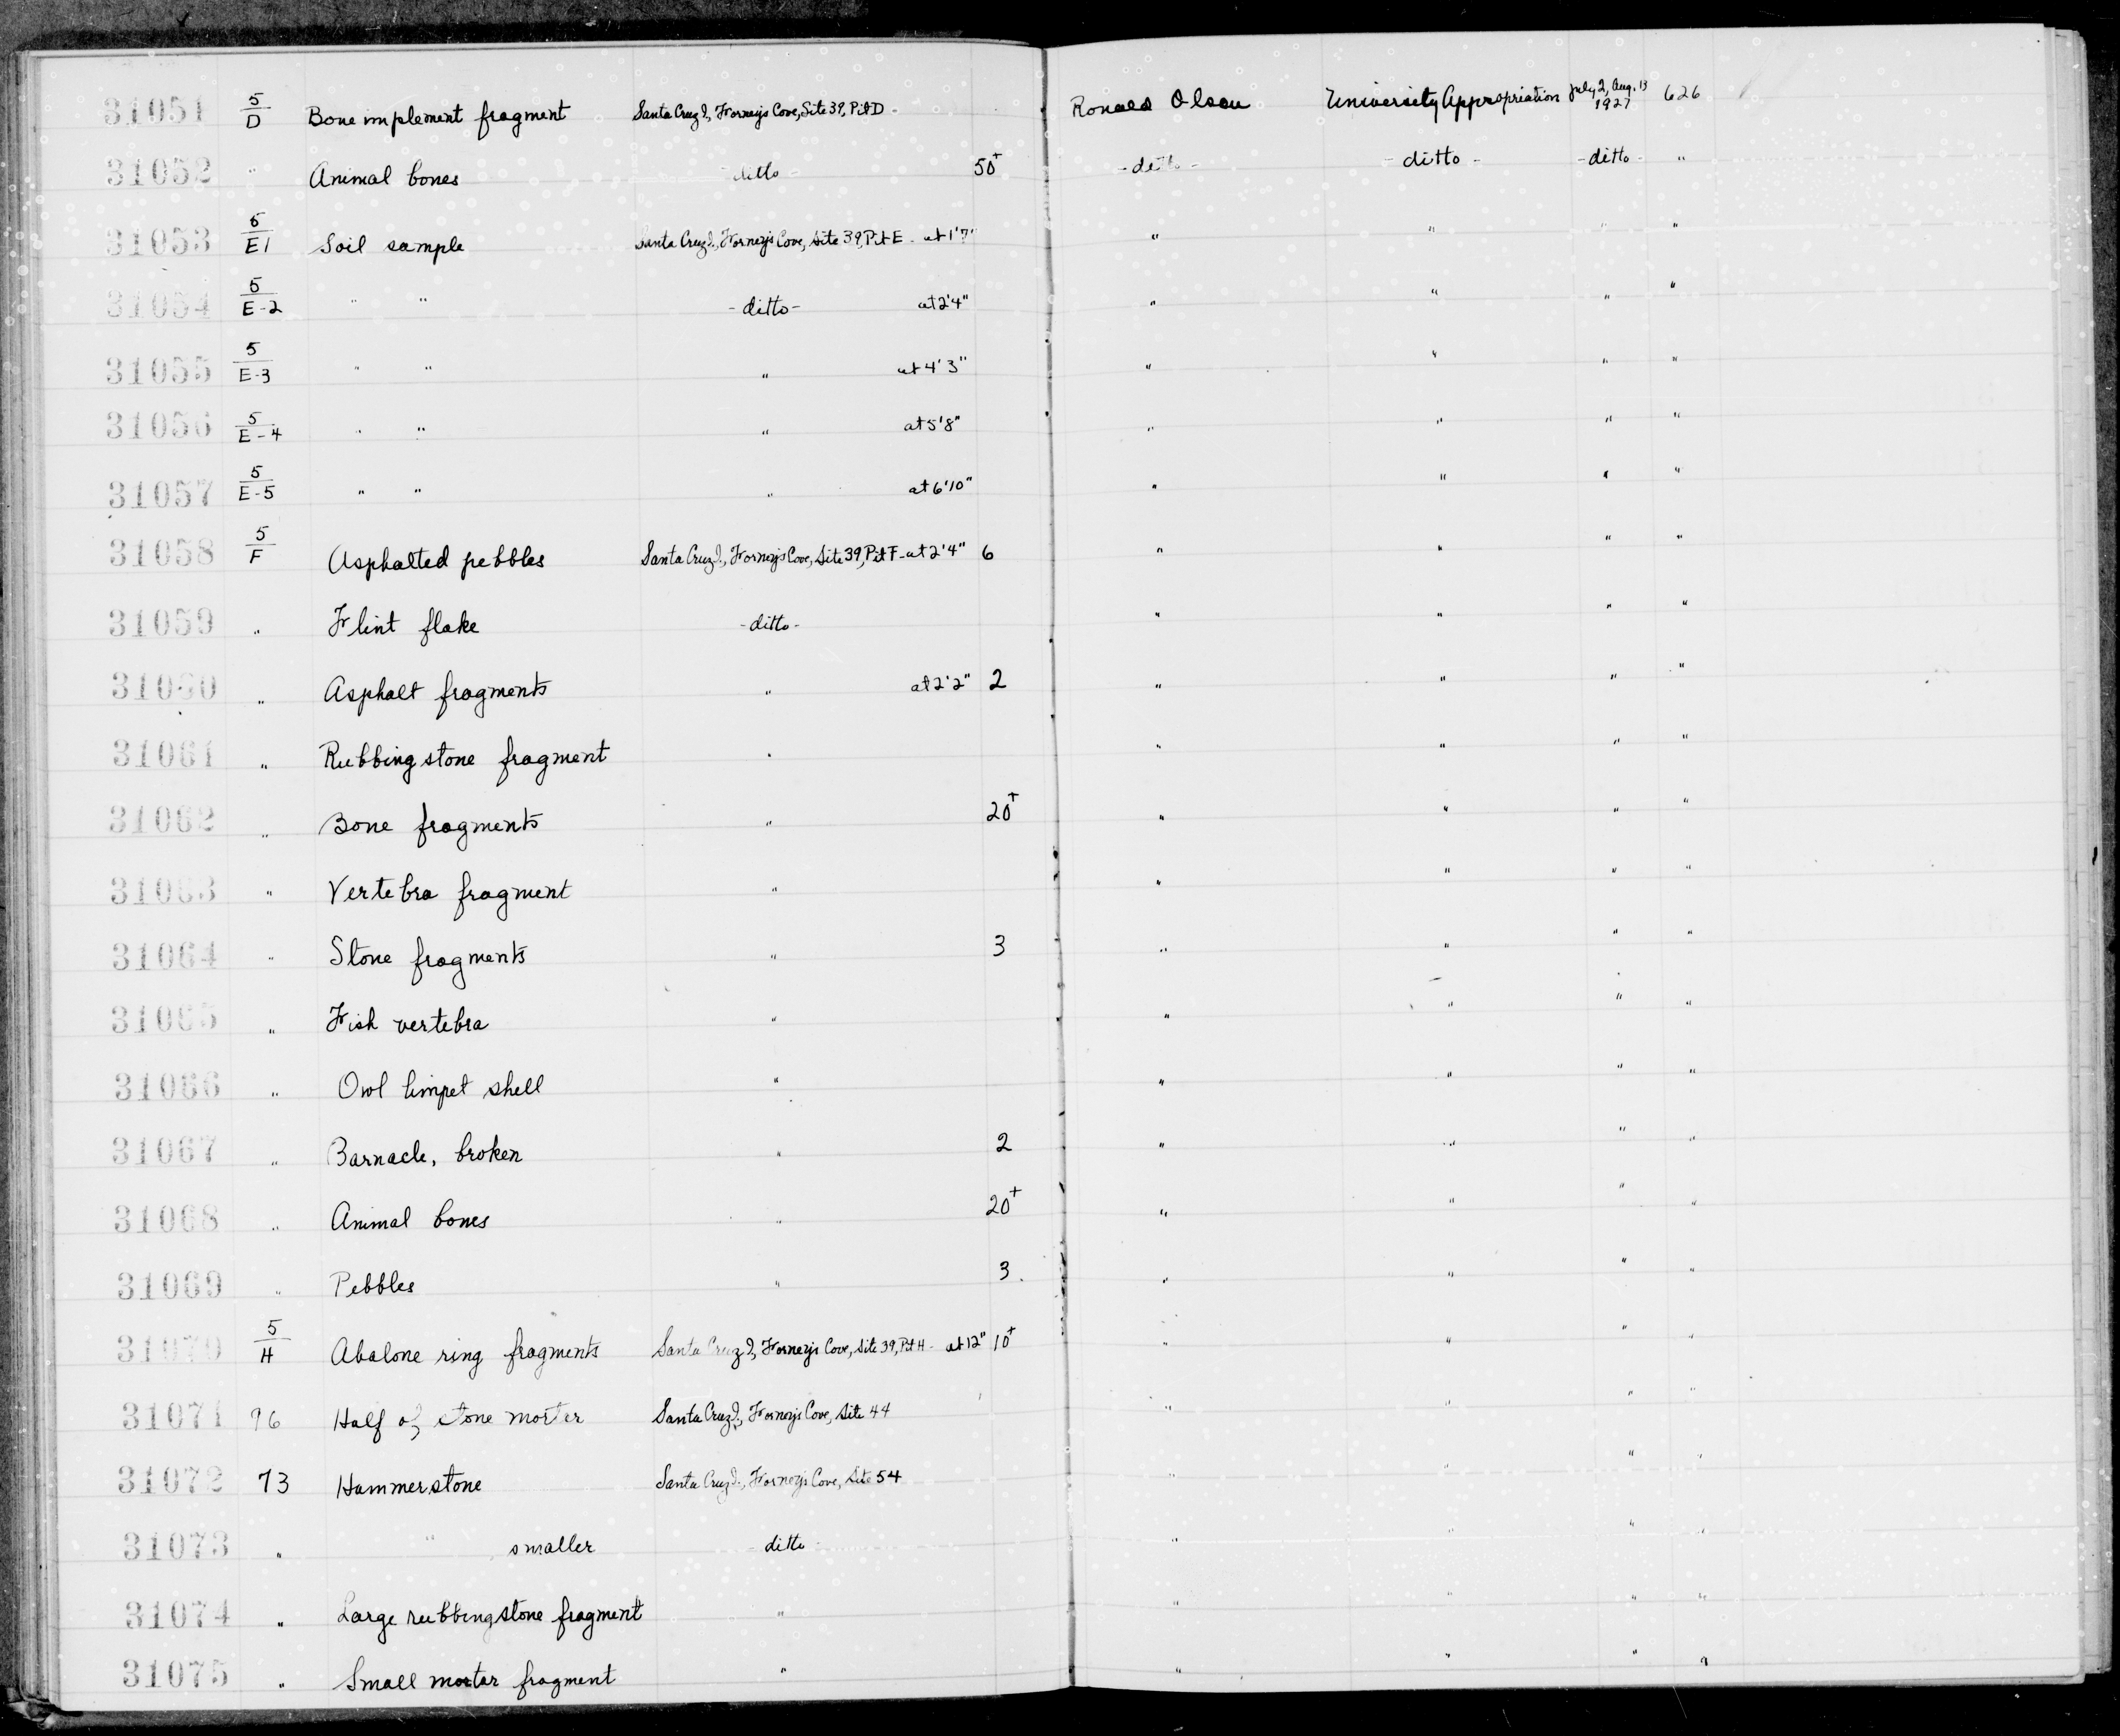 31051 5/D Bone implement fragment Santa Cruz I., Forneys Cove, Site 39, Pit D - Ronald Olson University Appropriation July 2, Aug. 13 1927 626
31052 " Animal bones - ditto - 50+ - ditto - - ditto - - ditto - "
31053 5/E1 Soil sample Santa Cruz I., Forneys Cove, Site 39, Pit E - at 1'7" " " " "
31054 5/E-2 " " - ditto - at 2'4" " " " "
31055 5/E-3 " " " at 4'3" " " " "
31056 5/E-4 " " " at 5'8" " " " "
31057 5/E-5 " " " at 6'10" " " " "
31058 5/F Asphalted pebbles Santa Cruz I., Forneys Cove, Site 39, Pit F - at 2'4" 6 " " " "
31059 " Flint flake - ditto - " " " "
31060 " Asphalt fragments " at 2'2" 2 " " " "
31061 " Rubbing stone fragment " " " " "
31062 " Bone fragments " 20+ " " " "
31063 " Vertebra fragment " " " " "
31064 " Stone fragments " 3 " " " "
31065 " Fish vertebra " " " " "
31066 " Owl limpet shell " " " " "
31067 " Barnacle, broken " 2 " " " "
31068 " Animal bones " 20+ " " " "
31069 " Pebbles " 3 " " " "
31070 5/H Abalone ring fragments Santa Cruz I., Forneys Cove, Site 39, Pit H - at 12" 10+ " " " "
31071 96 Half of stone morter Santa Cruz I., Forneys Cove, Site 44 " " " "
31072 73 Hammerstone Santa Cruz I., Forneys Cove, Site 54 " " " "
31073 " " smaller ditto " " " "
31074 " Large rubbing stone fragment " " " " "
31075 " Small mortar fragment " " " " "